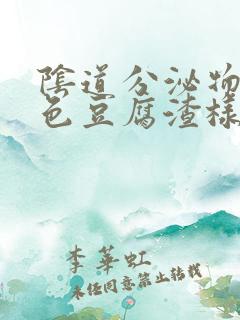 陰道分泌物
色豆腐渣樣
李華虹
未經同意禁止轉載